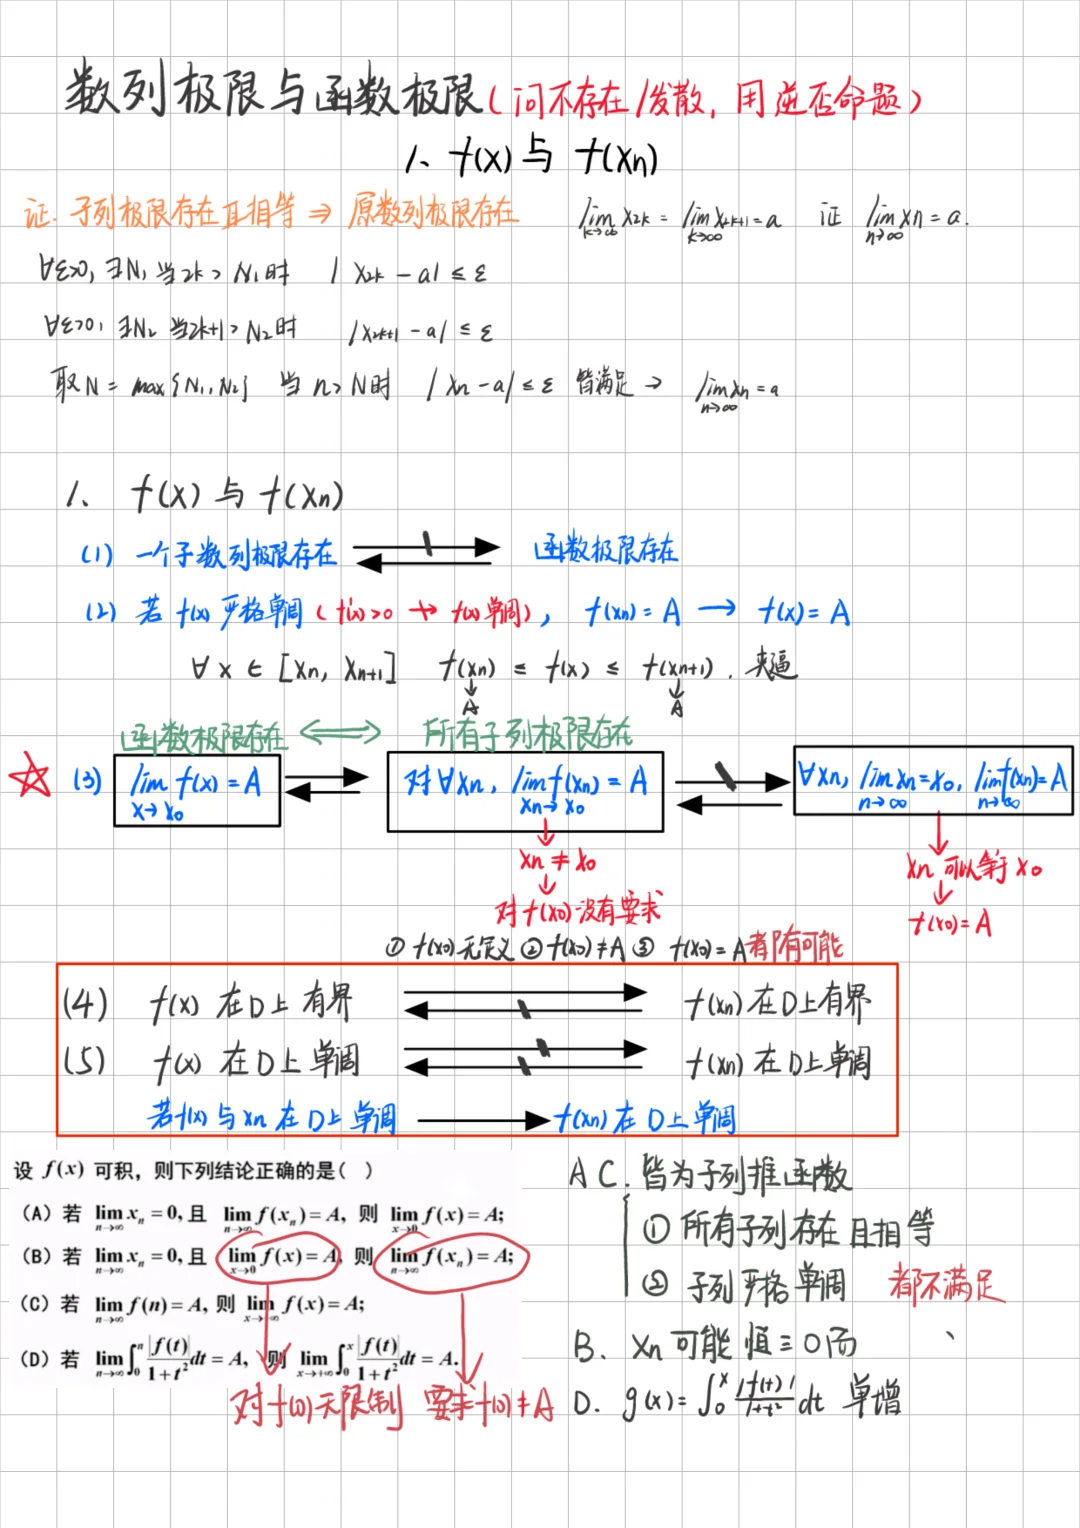 数列极限与函数极限(问不存在/发散,用逆否命题)
1、f(x)与 f(xn)
证.子列极限存在且相等 ⇒ 原数列极限存在 lim x2k = lim x2k+1 = a 证 lim xn = a.
k→∞ k→∞ n→∞
∀ε>0, ∃N1 当2k > N1时 |x2k - a| ≤ ε
∀ε>0, ∃N2 当2k+1 > N2时 |x2k+1 - a| ≤ ε
取N = max{N1, N2} 当 n > N时 |xn - a| ≤ ε 皆满足 → lim xn = a
n→∞
1、 f(x) 与 f(xn)
(1) 一个子数列极限存在 函数极限存在
(2) 若 f(x) 严格单调 (f'(x)>0 → f(x)单调), f(xn) = A → f(x) = A
∀ x ∈ [xn, xn+1] f(xn) ≤ f(x) ≤ f(xn+1). 夹逼
↓ ↓
A A
函数极限存在 ⟺ 所有子列极限存在
☆ (3) lim f(x) = A 对∀xn, lim f(xn) = A ∀xn, lim xn = x0, lim f(xn) = A
x→x0 xn→x0 n→∞ n→∞
xn ≠ x0 xn 可以等于 x0
对f(x0)没有要求 f(x0) = A
① f(x0)无定义 ② f(x0)≠A ③ f(x0) = A 都有可能
(4) f(x) 在D上有界 f(xn)在D上有界
(5) f(x) 在D上单调 f(xn)在D上单调
若f(x)与xn在D上单调 → f(xn)在D上单调
设 f(x) 可积,则下列结论正确的是( )
(A) 若 lim xn = 0, 且 lim f(xn) = A, 则 lim f(x) = A;
n→∞ n→∞ x→0
(B) 若 lim xn = 0, 且 lim f(x) = A, 则 lim f(xn) = A;
n→∞ x→0 n→∞
(C) 若 lim f(n) = A, 则 lim f(x) = A;
n→∞
(D) 若 lim ∫0^n |f(t)|/(1+t²) dt = A, 则 lim ∫0^x |f(t)|/(1+t²) dt = A.
n→∞ x→+∞
对f(0)无限制 要求f(0)≠A
A C. 皆为子列推函数
① 所有子列存在且相等
② 子列严格单调 都不满足
B. xn可能恒≡0而
D. g(x) = ∫0^x |f(t)|/1+t² dt 单增